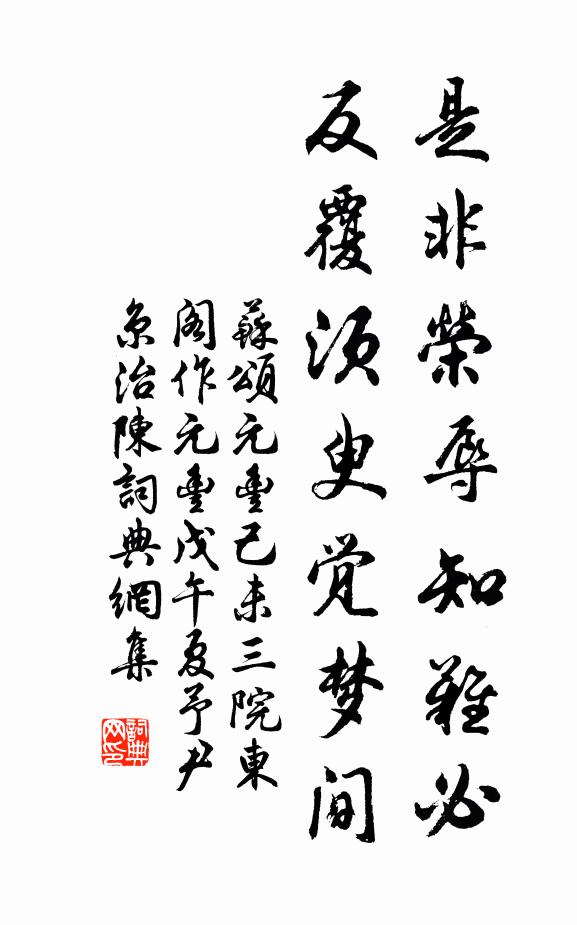 是非榮辱知難必
反覆須臾觉梦间
蘇頌元豐己未三院東
閣作元豐戊午夏予尹
京治陳詞典網集
詞典
网印